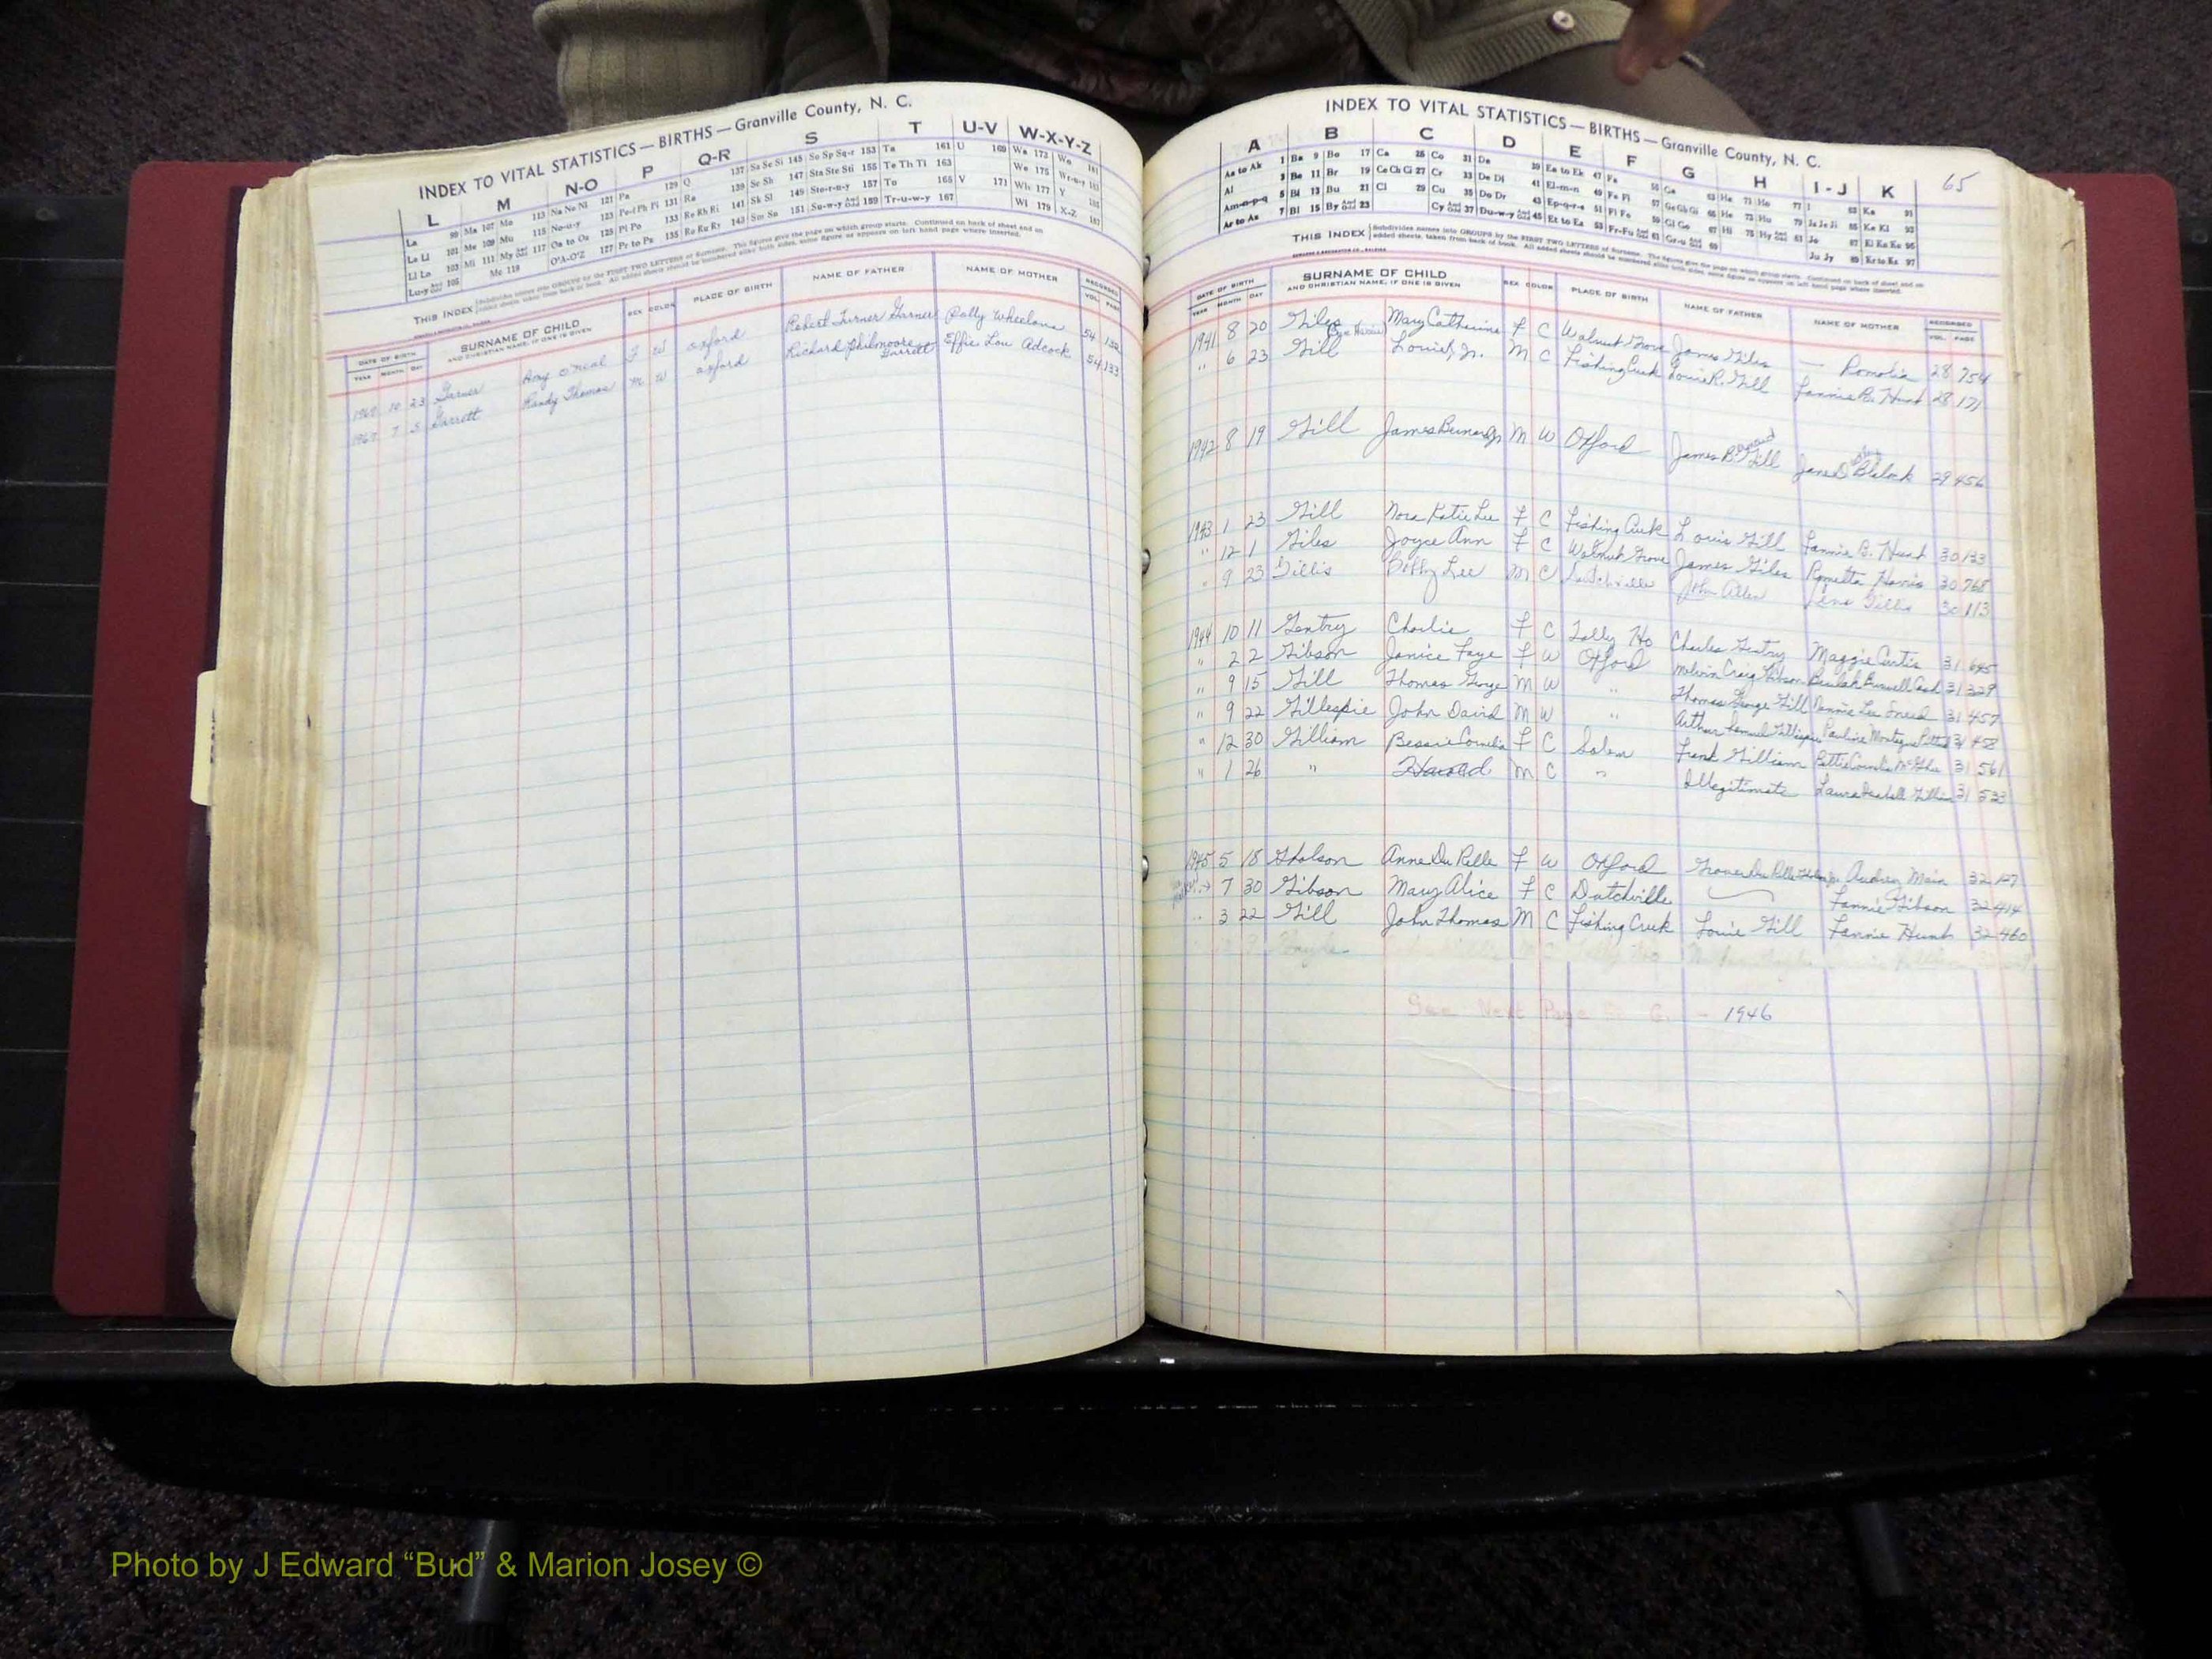 INDEX TO VITAL STATISTICS — BIRTHS — Granville County, N. C.
L M N-O P Q-R S T U-V W-X-Y-Z
La 99 Ma 107 Mo 113 Na Ne Ni 121 Pa 129 Q 137 Sa Se Si 145 So Sp Sq-r 153 Ta 161 U 169 Wa 173 Wo 181
Le Ll 101 Me 109 Mu 115 No-u-y 123 Pe-f Ph Pi 131 Ra 139 Sc Sh 147 Sta Ste Sti 155 Te Th Ti 163 We 175 Wr-u-y 183
Li Lo 103 Mi 111 My And Add 117 Oa to Oz 125 Pl Po 133 Re Rh Ri 141 Sk Sl 149 Sto-r-u-y 157 To 165 V 171 Wh 177 Y 185
Lu-y And Add 105 Mc 119 O'A-O'Z 127 Pr to Pz 135 Ro Ru Ry 143 Sm Sn 151 Su-w-y And Add 159 Tr-u-w-y 167 Wi 179 X-Z 187
THIS INDEX Subdivides names into GROUPS by the FIRST TWO LETTERS of Surname. The figures give the page on which group starts. Continued on back of sheet and on
added sheets, taken from back of book. All added sheets should be numbered alike both sides, same figure as appears on left hand page where inserted.
DATE OF BIRTH SURNAME OF CHILD SEX COLOR PLACE OF BIRTH NAME OF FATHER NAME OF MOTHER RECORDED
YEAR MONTH DAY AND CHRISTIAN NAME, IF ONE IS GIVEN VOL. PAGE
1967 10 23 Garner Amy O'Neal F W Oxford Robert Turner Garner Polly Wheelous 54 132
1967 7 5 Garrett Randy Thomas M W Oxford Richard Philmoore Garrett Effie Lou Adcock 54 133
INDEX TO VITAL STATISTICS — BIRTHS — Granville County, N. C.
65
A B C D E F G H I-J K
Aa to Ak 1 Ba 9 Bo 17 Ca 25 Co 31 Da 39 Ea to Ek 47 Fa 55 Ga 63 Ha 71 Ho 77 I 83 Ka 91
Al 3 Be 11 Br 19 Ce Ch Ci 27 Cr 33 De Di 41 El-m-n 49 Fe Fi 57 Ge Gh Gi 65 He 73 Hu 79 Ja Je Ji 85 Ke Ki 93
Am-n-p-q 5 Bi 13 Bu 21 Cl 29 Cu 35 Do Dr 43 Ep-q-r-s 51 Fl Fo 59 Gl Go 67 Hi 75 Hy And Add 81 Jo 87 Kl Kn Ko 95
Ar to Az 7 Bl 15 By And Add 23 Cy And Add 37 Du-w-y And Add 45 Et to Ez 53 Fr-Fu And Add 61 Gr-u And Add 69 Ju Jy 89 Kr to Kz 97
THIS INDEX Subdivides names into GROUPS by the FIRST TWO LETTERS of Surname. The figures give the page on which group starts. Continued on back of sheet and on
added sheets, taken from back of book. All added sheets should be numbered alike both sides, same figure as appears on left hand page where inserted.
DATE OF BIRTH SURNAME OF CHILD SEX COLOR PLACE OF BIRTH NAME OF FATHER NAME OF MOTHER RECORDED
YEAR MONTH DAY AND CHRISTIAN NAME, IF ONE IS GIVEN VOL. PAGE
1941 8 20 Giles Mary Catherine F C Walnut Grove James Giles — Romelia 28 754
" 6 23 Gill Louie, Jr. M C Fishing Creek Louie R. Gill Fannie R. Hunt 28 171
1942 8 19 Gill James Bernard Jr M W Oxford James Bernard Gill Jane D. Blalock 29 456
1943 1 23 Gill Nora Katie Lee F C Fishing Creek Louis Gill Fannie B. Hunt 30 133
" 12 1 Giles Joyce Ann F C Walnut Grove James Giles Rometta Harris 30 768
" 9 23 Gillis Bobby Lee M C Dutchville John Allen Lena Gillis 30 113
1944 10 11 Gentry Charlie F C Tally Ho Charles Gentry Maggie Curtis 31 645
" 2 2 Gibson Janice Faye F W Oxford Melvin Craig Gibson Beulah Burwell Cash 31 329
" 9 15 Gill Thomas George M W " Thomas George Gill Nannie Lee Sneed 31 457
" 9 22 Gillespie John David M W " Arthur Samuel Gillespie Pauline Montague 31 458
" 12 30 Gilliam Bessie Cornelia F C Salem Frank Gilliam Pattie Cornelia McGhee 31 561
" 1 26 " Harold M C " Illegitimate Laura Isabell Gilliam 31 533
1945 5 18 Gholson Anne Du Pelle F W Oxford Grover Du Pelle Gholson Jr. Audrey Main 32 127
7 30 Gibson Mary Alice F C Dutchville Fannie Gibson 32 414
" 3 22 Gill John Thomas M C Fishing Creek Louie Gill Fannie Hunt 32 460
See Next Page - 1946
Photo by J Edward “Bud” & Marion Josey ©